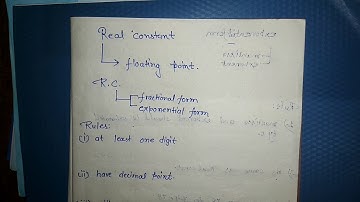 Real constant
↳ floating point.
R.C.
fractional form
exponential form
Rules:
(i) at least one digit
(ii) have decimal point.